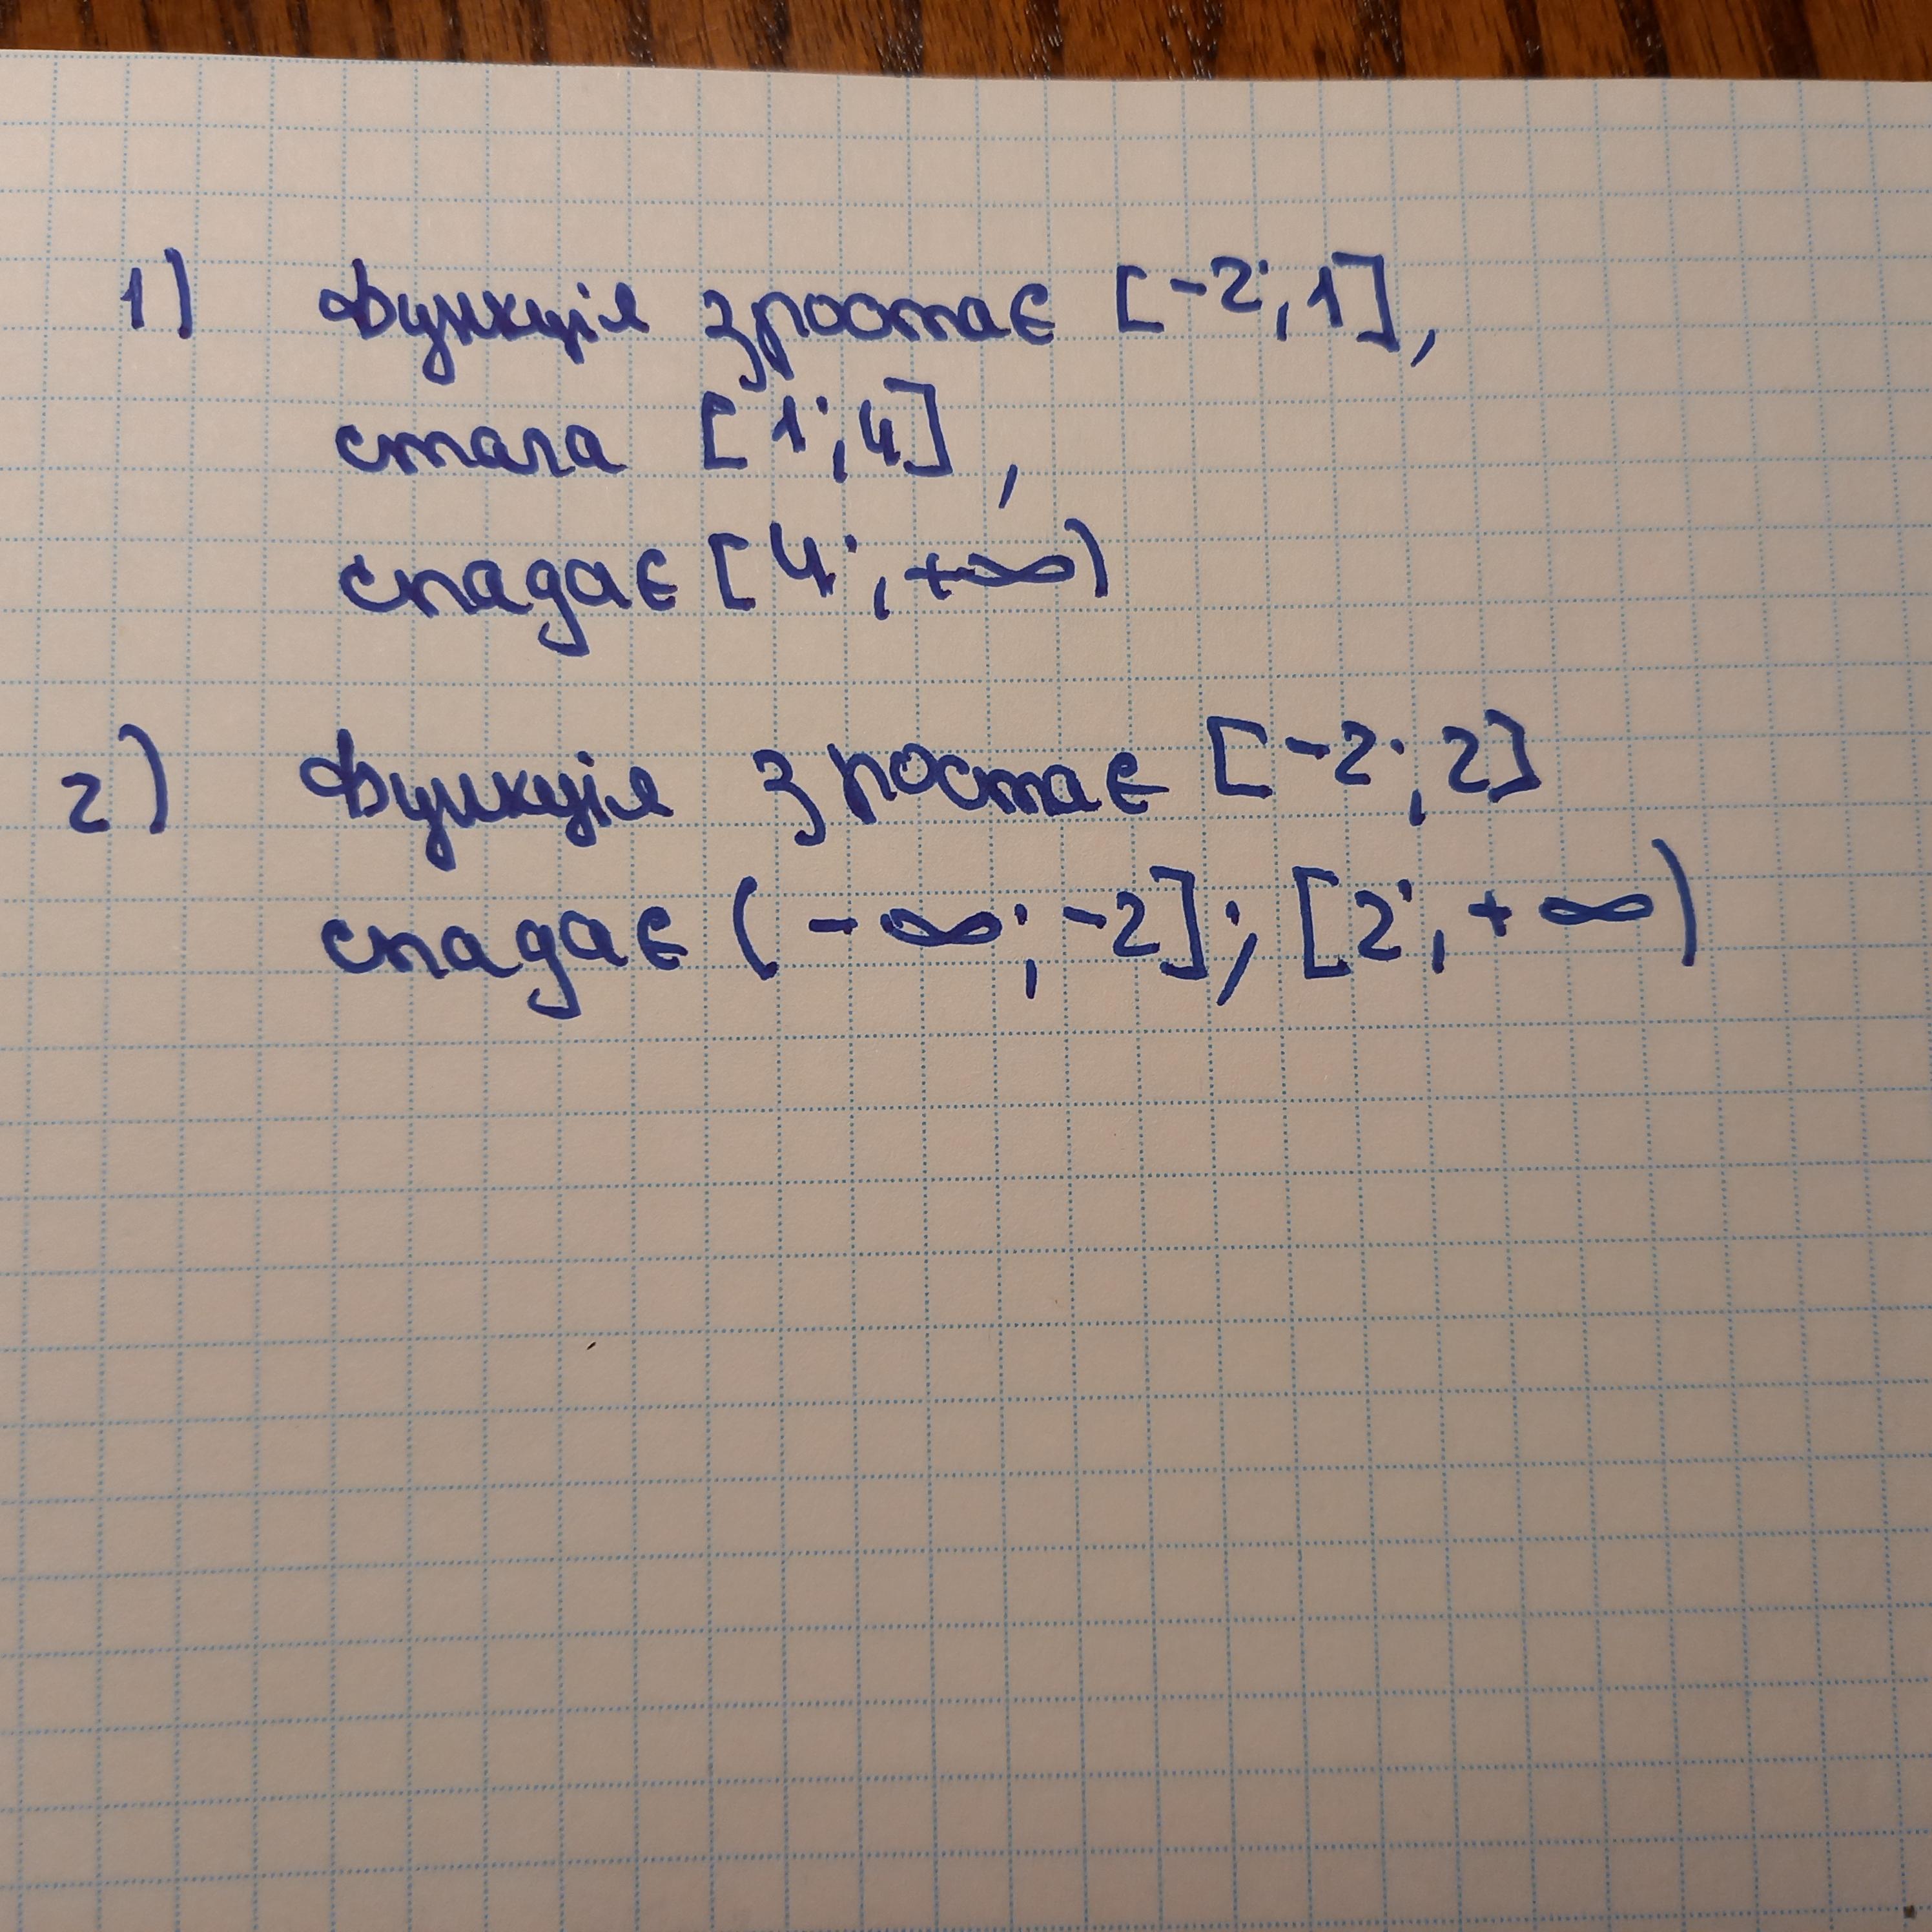 1) Функція зростає [-2; 1],
стала [1; 4],
спадає [4; +∞)
2) Функція зростає [-2; 2]
спадає (-∞; -2]; [2; +∞)